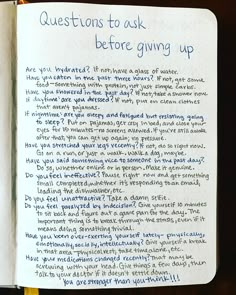 Questions to ask
before giving up
Are you hydrated? If not, have a glass of water.
Have you eaten in the past three hours? If not, get some
food—something with protein, not just simple carbs.
Have you showered in the past day? If not, take a shower now.
If daytime: are you dressed? If not, put on clean clothes
that aren't pajamas.
If nighttime: are you sleepy and fatigued but resisting going
to sleep? Put on pajamas, get cozy in bed, and close your
eyes for 15 minutes—no screens allowed. If you're still awake
after that, you can get up again; no pressure.
Have you stretched your legs recently? If not, do so right now.
Go on a run, or just a walk.
Have you said something nice to someone in the past day?
Do so, whether online or in person. Make it genuine.
Do you feel ineffective? Pause right now and get something
small completed, whether it's responding to an email,
loading the dishwasher, etc.
Do you feel unattractive? Take a damn selfie.
Do you feel paralyzed by indecision? Give yourself 10 minutes
to sit back and figure out a game plan for the day. The
important thing is to break through the stasis, even if it
means doing something trivial.
Have you been over-exerting yourself lately—physically,
emotionally, socially, intellectually? Give yourself a break
in that area—physical rest, take time alone, etc.
Have your medications changed recently? That may be
with your head. Give things a few days, then
talk to your doctor if it doesn't settle down.
You are stronger than you think!!!